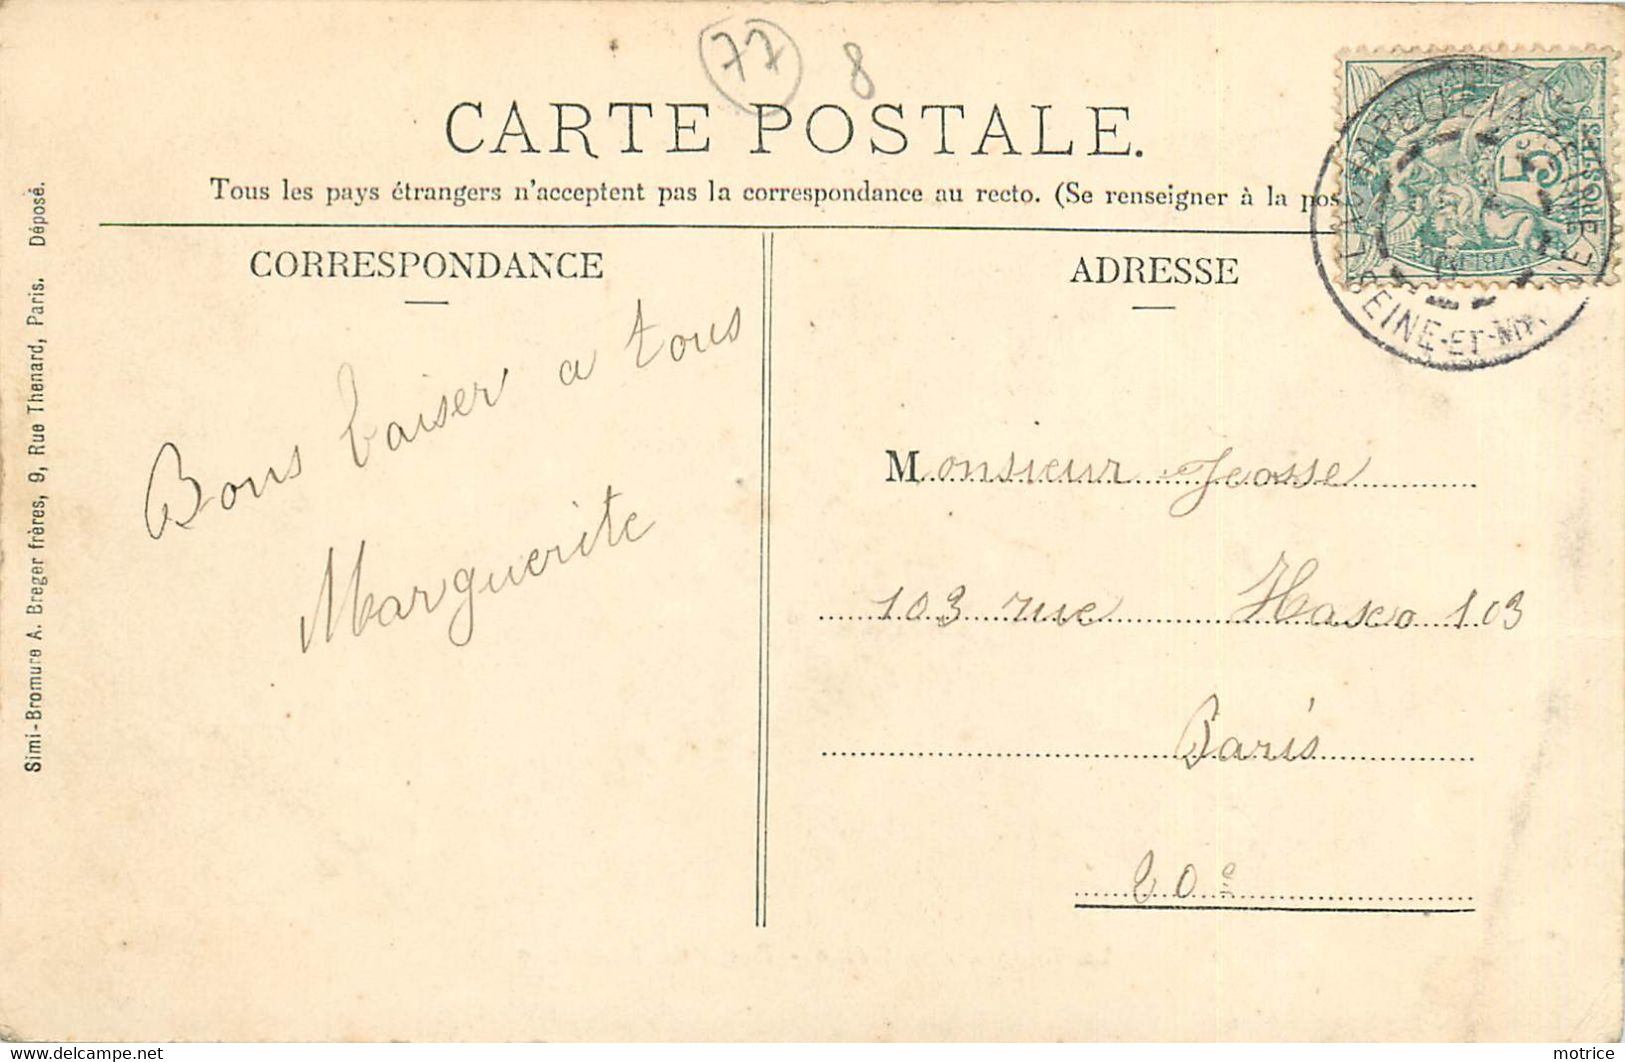 77
8
CARTE POSTALE.
Tous les pays étrangers n'acceptent pas la correspondance au recto. (Se renseigner à la pos
CORRESPONDANCE
Bons baiser a tous
Marguerite
ADRESSE
Monsieur Josse
103 rue Haxo 103
Paris
20e
5c
SEINE-ET-M
Simi-Bromure A. Breger frères, 9, Rue Thenard, Paris. Déposé.
https://www.delcampe.net
motrice